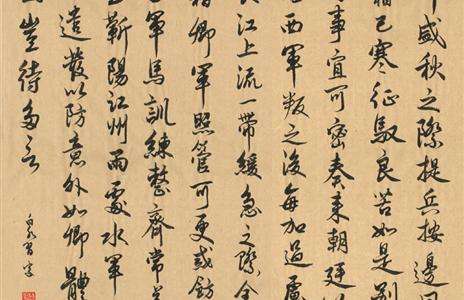 盛秋之際提兵按邊
霜已寒征馭良苦如是別
事宜可密奏來朝廷
西軍叛之後每加過慮
江上流一帶緩急之際全
藉卿軍照管可更戒飭
軍馬訓練整齊常
至蘄陽江州兩處水軍
遣發以防意外如卿體
豈待多言
習字